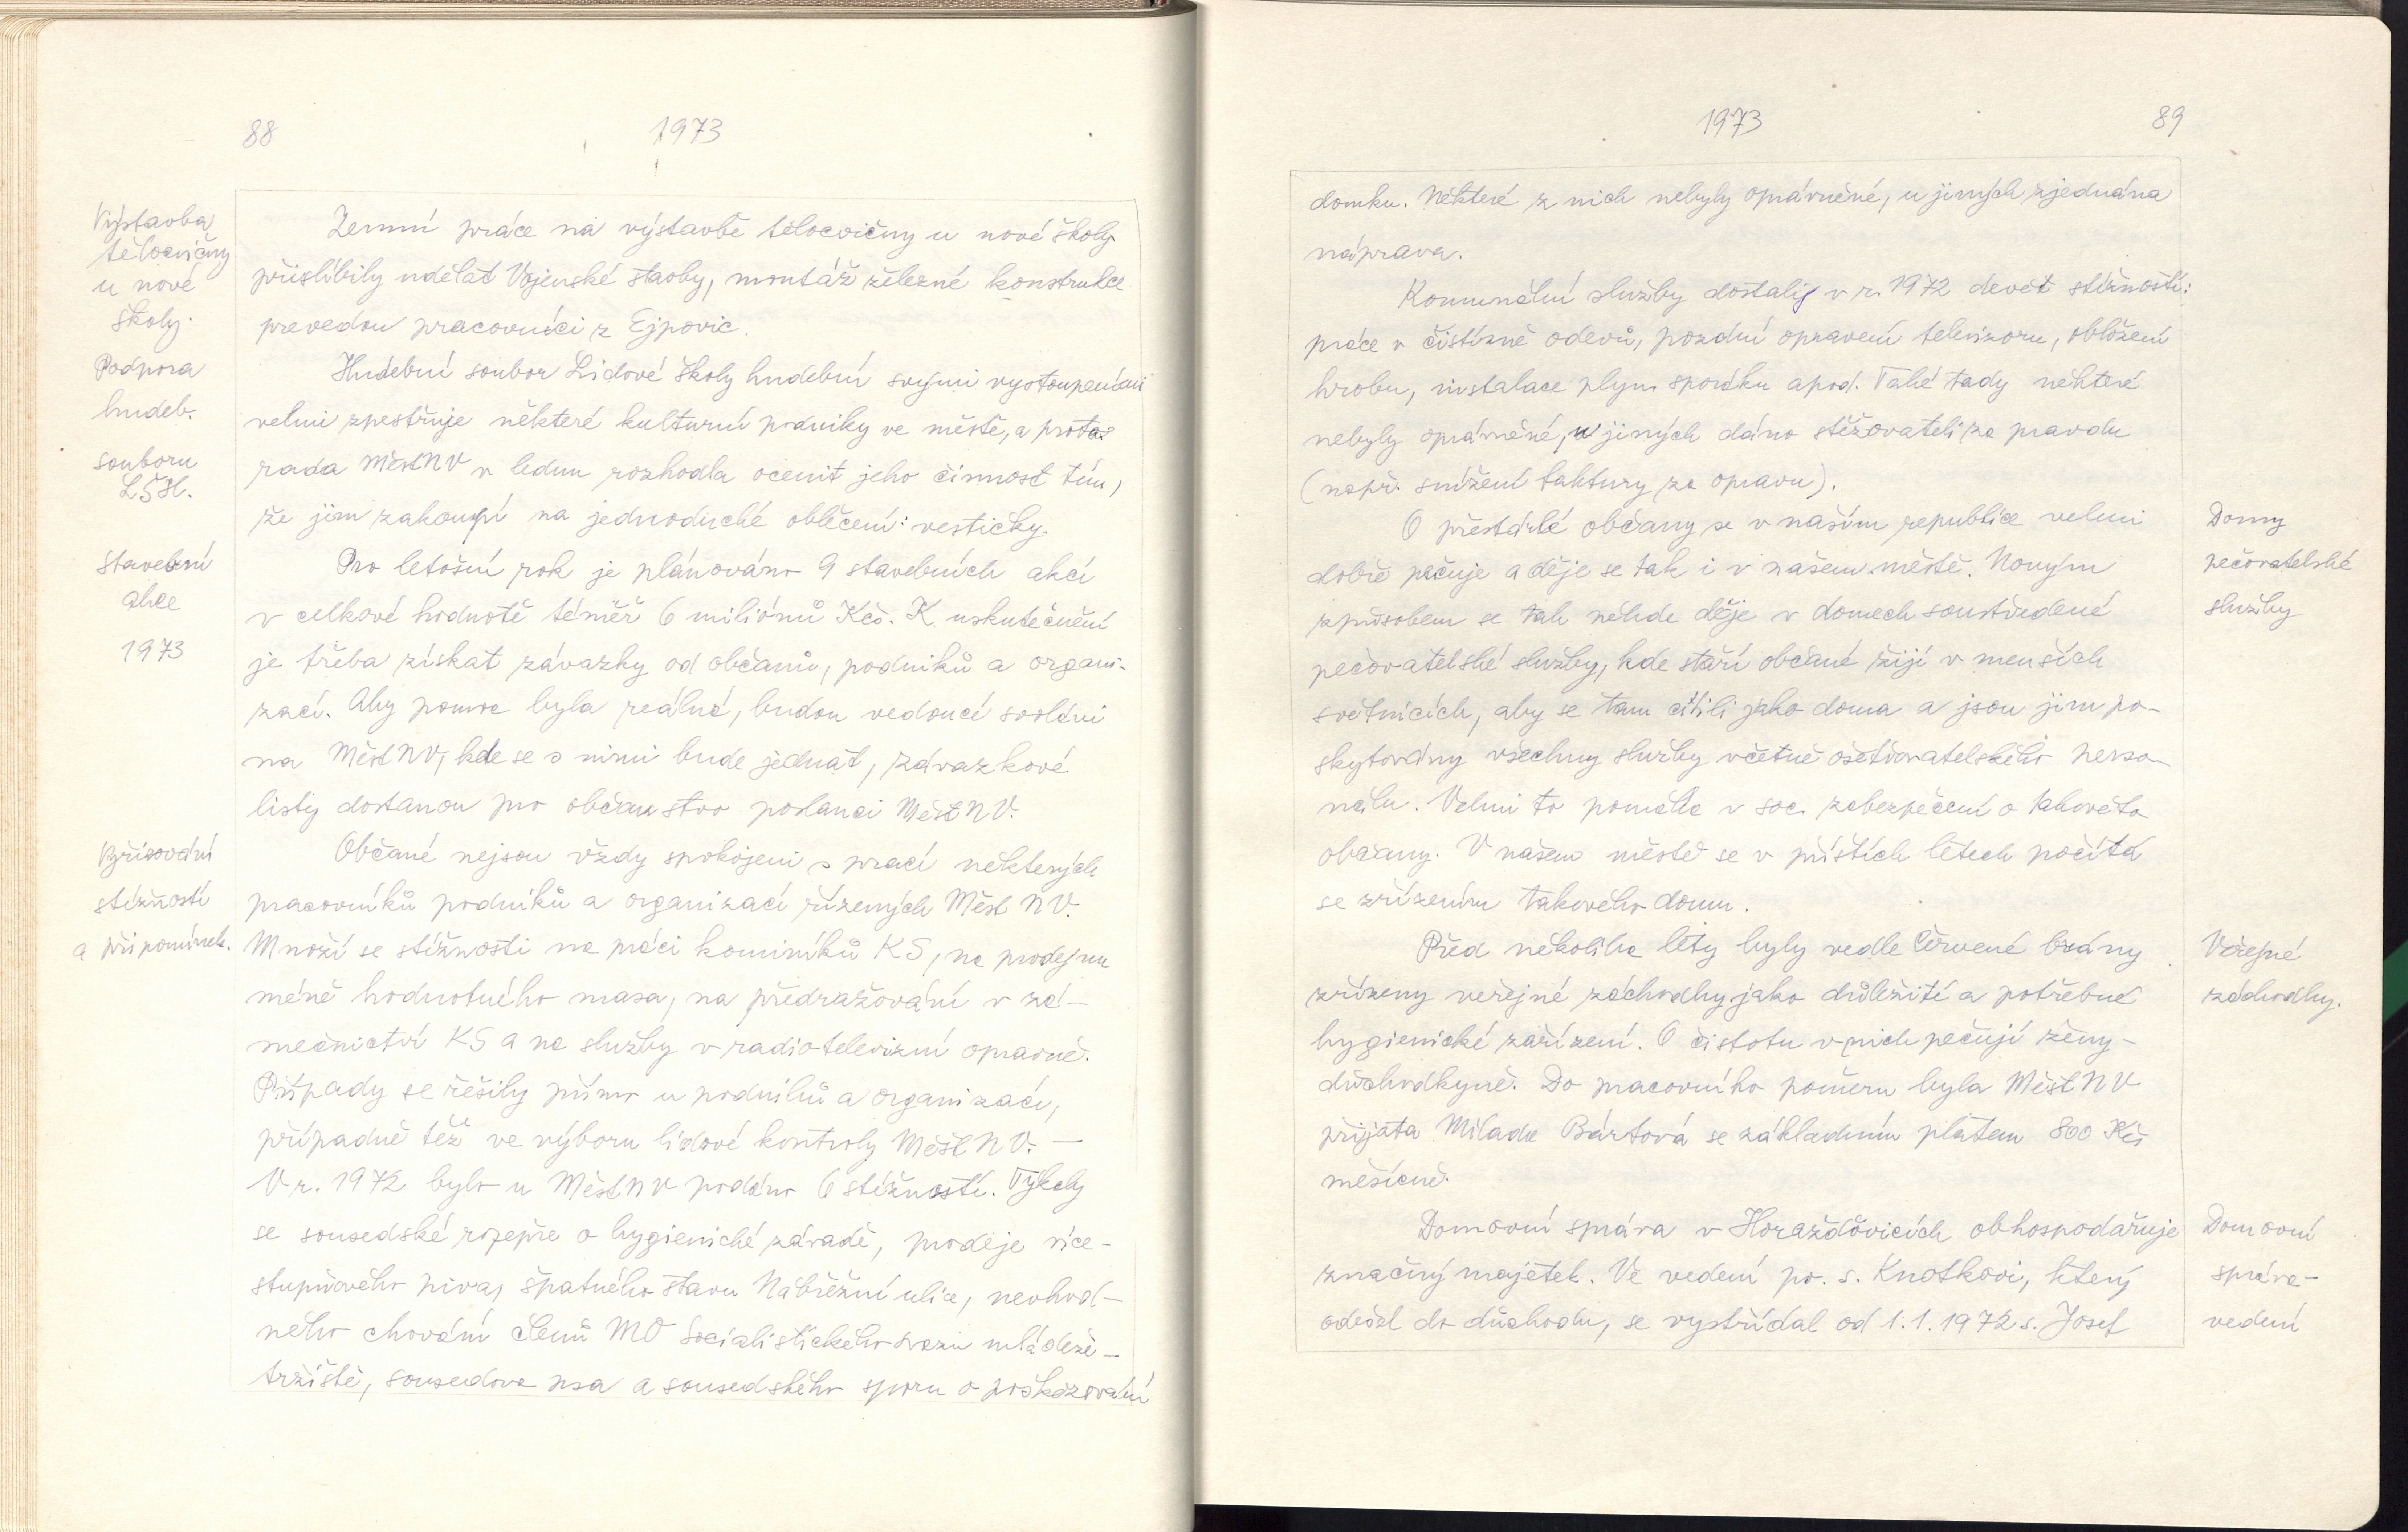 88
1973
Výstavba
tělocvičny
u nové
školy.
Zemní práce na výstavbě tělocvičny u nové školy
přislíbily udělat Vojenské stavby, montáž železné konstrukce
prevedou pracovníci z Ejpovic.
Podpora
hudeb.
souboru
LŠH.
Hudební soubor Lidové školy hudební svými vystoupeními
velmi zpestřuje některé kulturní podniky ve městě, a proto
rada MěstNV v lednu rozhodla ocenit jeho činnost tím,
že jim zakoupí na jednoduché oblečení: vestičky.
Stavební
akce
1973
Pro letošní rok je plánováno 9 stavebních akcí
v celkové hodnotě téměř 6 miliónů Kčs. K uskutečnění
je třeba získat závazky od občanů, podniků a organi-
zací. Aby pomoc byla reálná, budou vedoucí svoláni
na MěstNV, kde se s nimi bude jednat, závazkové
listy dostanou pro občanstvo poslanci MěstNV.
Vyřizování
stížností
a připomínek.
Občané nejsou vždy spokojeni s prací některých
pracovníků podniků a organizací řízených Měst NV.
Množí se stížnosti na práci kominíků KS, na prodejnu
méně hodnotného masa, na předražování v zá-
mečnictví KS a na služby v radiotelevizní opravně.
Případy se řešily přímo u podniků a organizací,
případně též ve výboru lidové kontroly MěstNV. —
V r. 1972 bylo u MěstNV podáno 6 stížností. Týkaly
se sousedské rozepře o hygienické závadě, prodeje více-
stupňového piva, špatného stavu Nábřežní ulice, nevhod-
ného chování členů MO Socialistického svazu mládeže -
tržiště, sousedova psa a sousedského sporu o poškozování
1973
89
domku. Některé z nich nebyly oprávněné, u jiných zjednána
náprava.
Komunální služby dostaly v r. 1972 devět stížností:
práce v čistírně oděvů, pozdní opravení televizoru, obložení
hrobu, instalace plyn. sporáku apod. Také tady některé
nebyly oprávněné, u jiných dáno stěžovateli za pravdu
(např. snížení faktury za opravu).
Domy
pečovatelské
služby
O přestárlé občany se v naším republice velmi
dobře pečuje a děje se tak i v našem městě. Novým
způsobem se tak někde děje v domech soustředené
pečovatelské služby, kde staří občané žijí v menších
světnicích, aby se tam cítili jako doma a jsou jim po-
skytovány všechny služby včetně ošetřovatelského perso-
nálu. Velmi to pomáhá v soc. zabezpečení o takovéto
občany. V našem městě se v příštích létech počítá
se zřízením takového domu.
Veřejné
záchodky.
Před několika léty byly vedle Červené brány
zřízeny veřejné záchodky jako důležité a potřebné
hygienické zařízení. O čistotu v nich pečují ženy-
důchodkyně. Do pracovního poměru byla MěstNV
přijata Milada Bártová se základním platem 800 Kčs
měsíčně.
Domovní
správa-
vedení
Domovní správa v Horažďovicích obhospodařuje
značný majetek. Ve vedení po s. Knotkovi, který
odešel do důchodu, se vystřídal od 1.1.1972 s. Josef